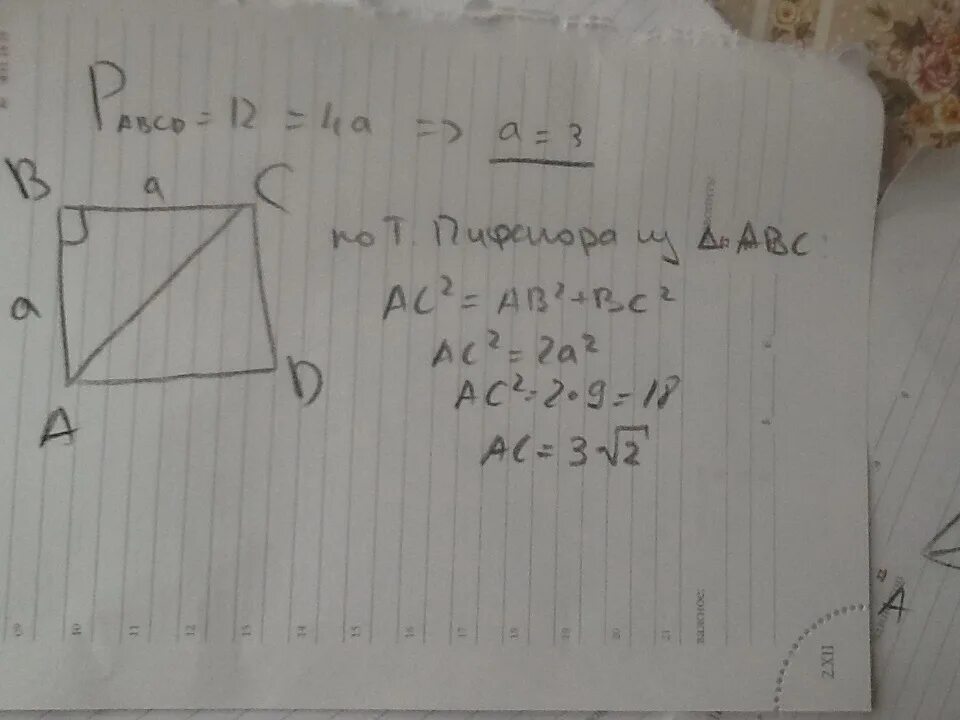 P ABCD = 12 = 4a => a = 3
B a C
a
A D
по Т. Пифагора из Δ ABC:
AC² = AB² + BC²
AC² = 2a²
AC² = 2·9 = 18
AC = 3√2
A
важное:
09 10 11 12 13 14 15 16 17 18 19 20 21
2.XII